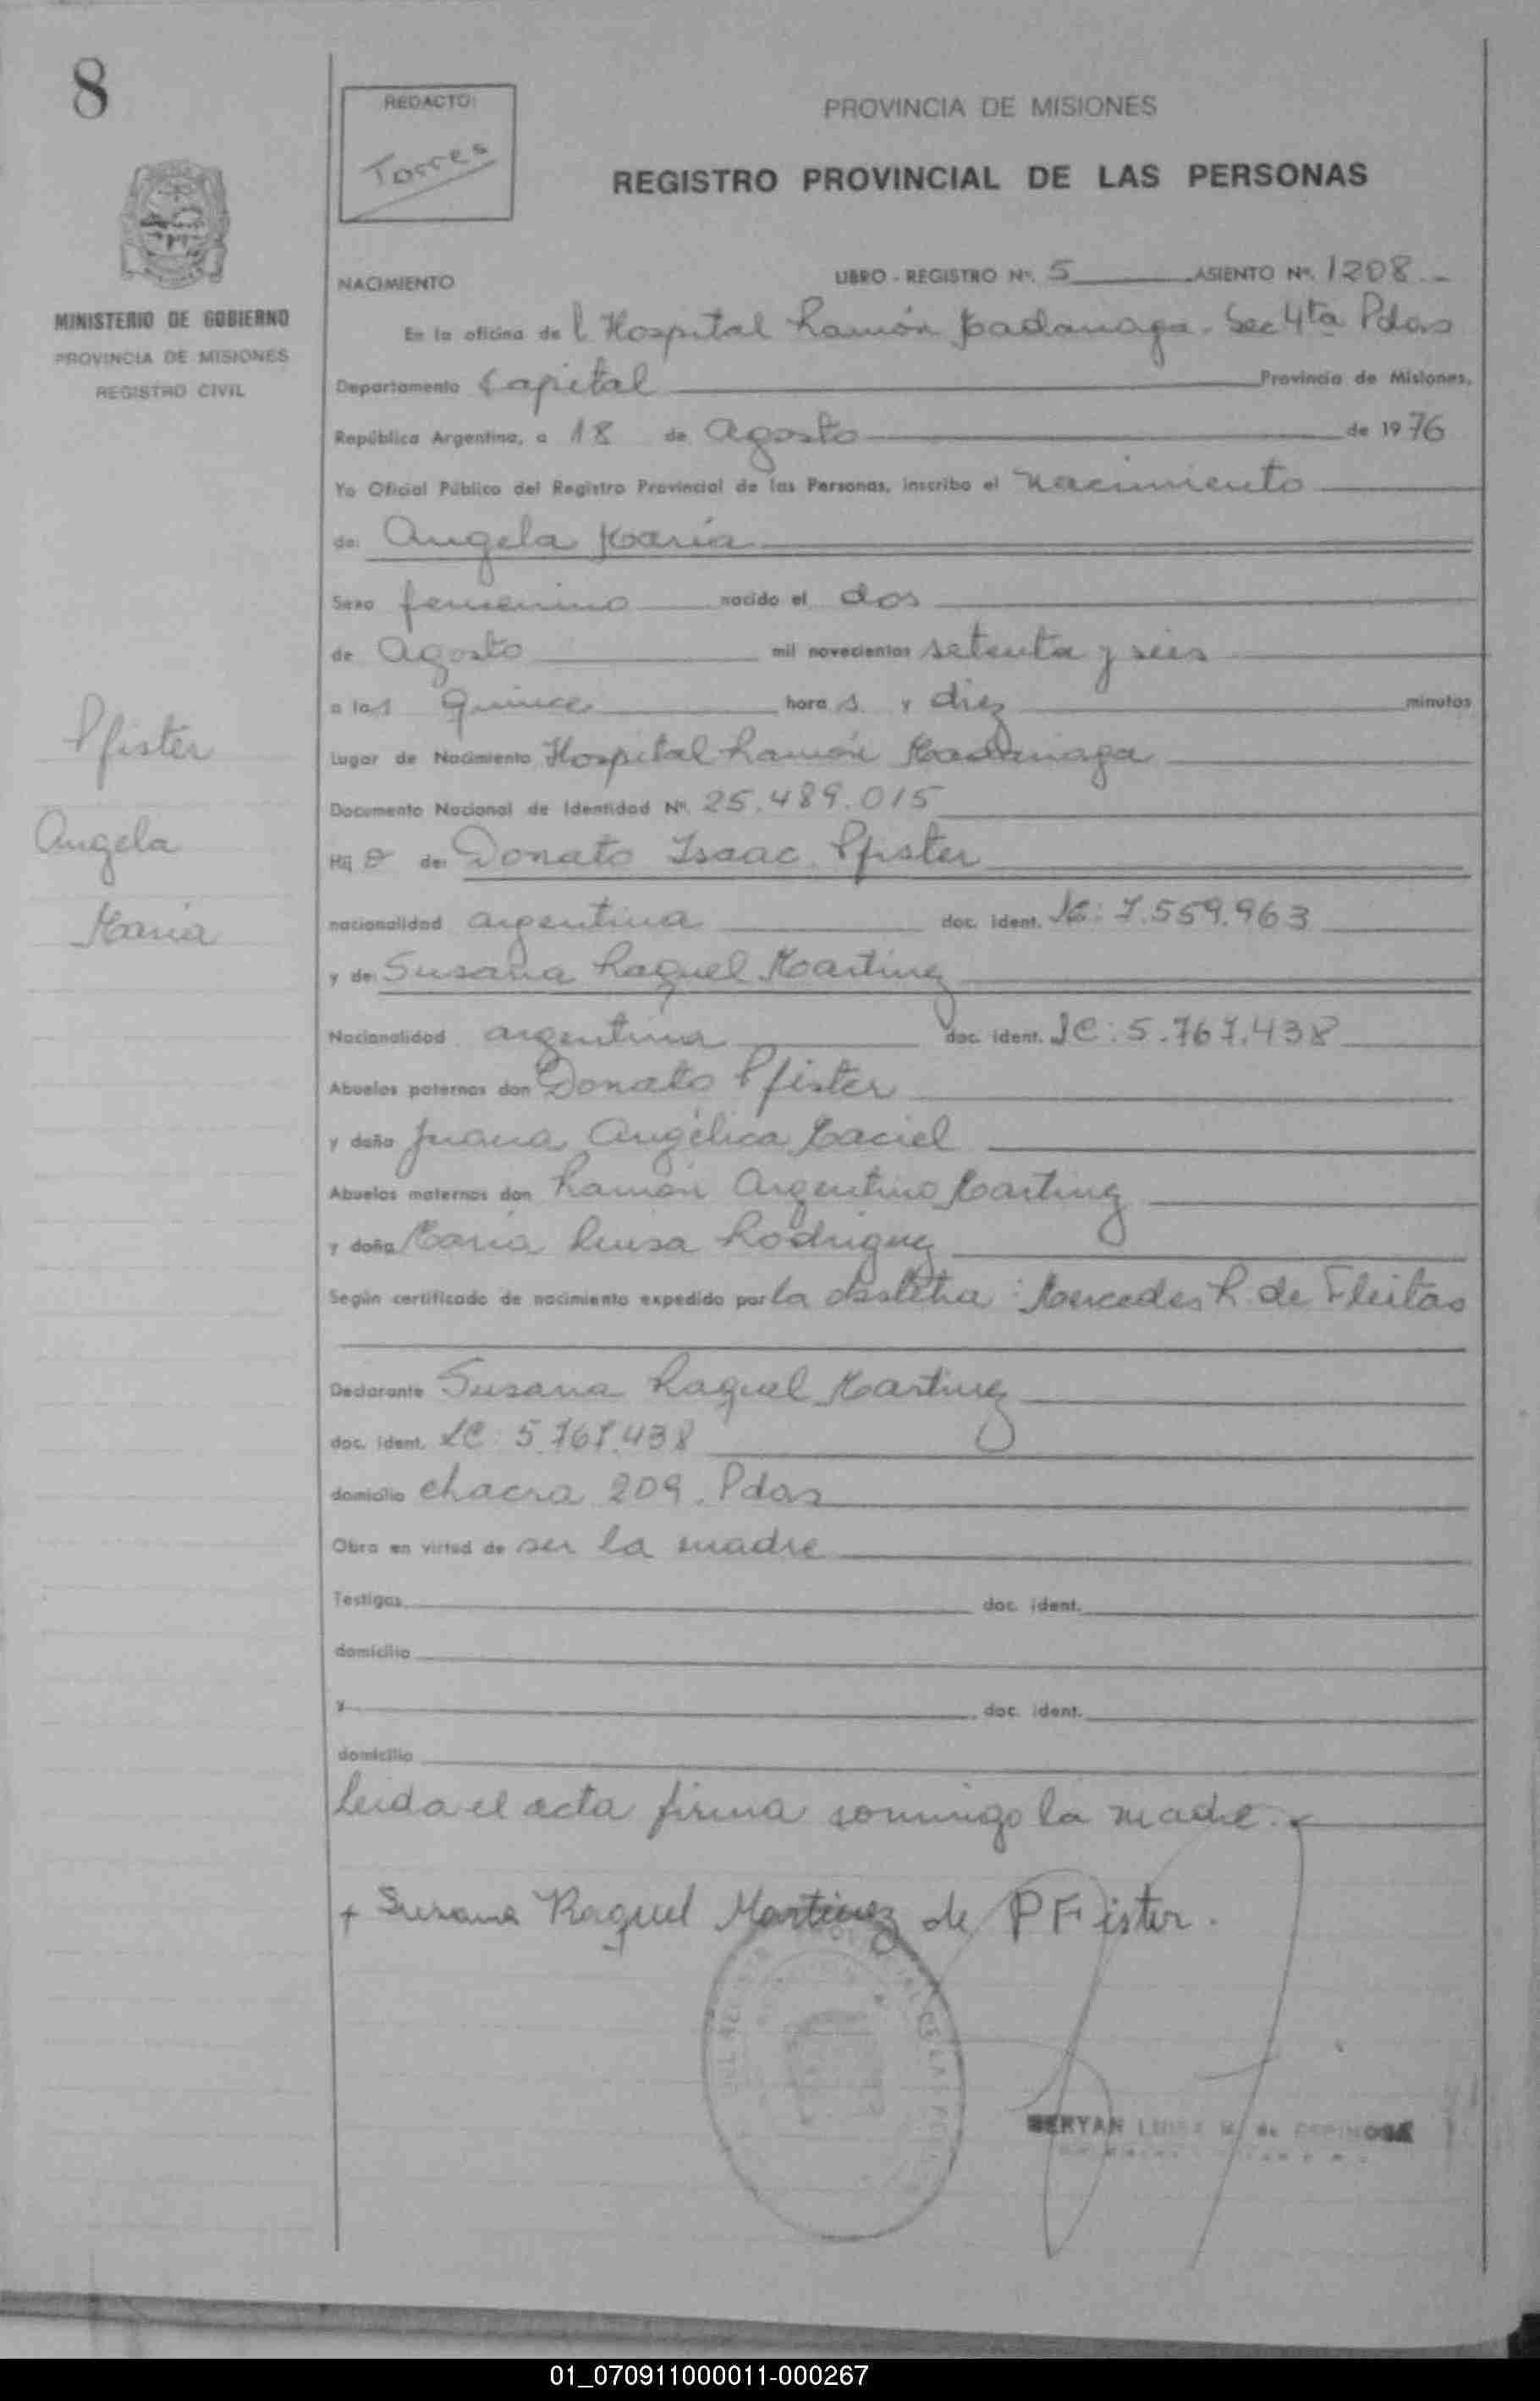 8
REDACTO:
Torres
PROVINCIA DE MISIONES
REGISTRO PROVINCIAL DE LAS PERSONAS
MINISTERIO DE GOBIERNO
PROVINCIA DE MISIONES
REGISTRO CIVIL
NACIMIENTO
LIBRO - REGISTRO Nº. 5 ASIENTO Nº. 1208
En la oficina del Hospital Ramón Madariaga. Sec 4ta Pdas
Departamento Capital Provincia de Misiones,
República Argentina, a 18 de Agosto de 1976
Yo Oficial Público del Registro Provincial de las Personas, inscribo el nacimiento
de: Angela María
Sexo femenino nacido el dos
de Agosto mil novecientos setenta y seis
a las quince horas y diez minutos
Lugar de Nacimiento Hospital Ramón Madariaga
Documento Nacional de Identidad Nº. 25.489.015
Hija de: Donato Isaac Pfister
nacionalidad argentina doc. ident. 7.559.963
y de: Susana Raquel Martinez
Nacionalidad argentina doc. ident. LC: 5.767.438
Abuelos paternos don Donato Pfister
y doña Juana Angélica Maciel
Abuelos maternos don Ramón Argentino Martinez
y doña María Luisa Rodriguez
Según certificado de nacimiento expedido por la obstetra: Mercedes R. de Fleitas
Declarante Susana Raquel Martinez
doc. ident. LC: 5.767.438
domicilio chacra 209. Pdas
Obra en virtud de ser la madre
Testigos doc. ident.
domicilio
y doc. ident.
domicilio
Leida el acta firma conmigo la madre.
+ Susana Raquel Martinez de PFister.
Pfister
Angela
María
01_070911000011-000267